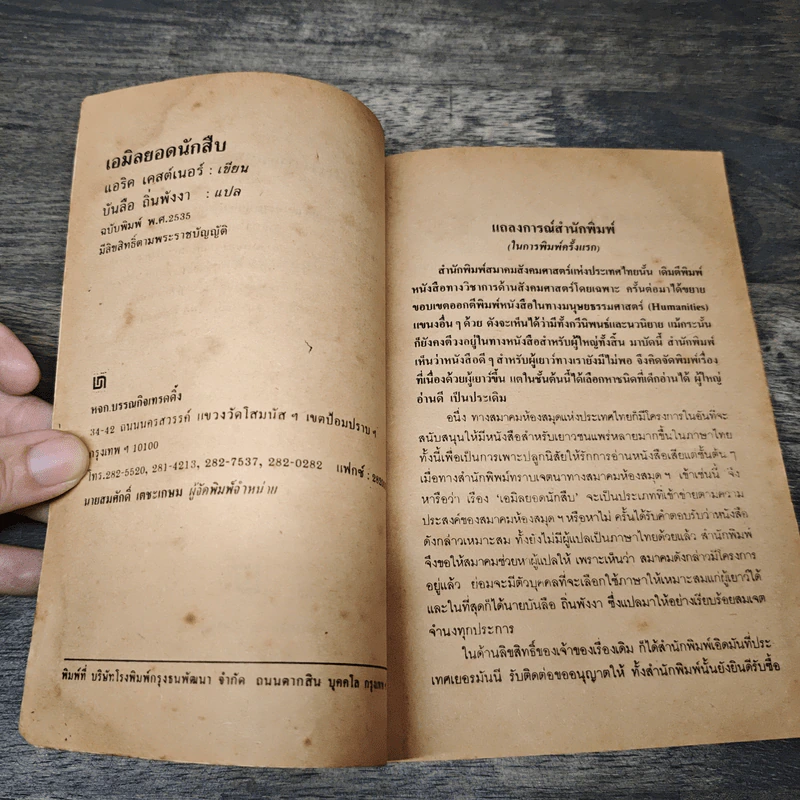 เอมิลยอดนักสืบ
แอริค เคสต์เนอร์ : เขียน
บันลือ ถิ่นพังงา : แปล
ฉบับพิมพ์ พ.ศ.2535
มีลิขสิทธิ์ตามพระราชบัญญัติ
หจก.บรรณกิจเทรดดิ้ง
34-42 ถนนนครสวรรค์ แขวงวัดโสมนัส ฯ เขตป้อมปราบ ฯ
กรุงเทพ ฯ 10100
โทร.282-5520, 281-4213, 282-7537, 282-0282 แฟกซ์ :
นายสมศักดิ์ เตชะเกษม ผู้จัดพิมพ์จำหน่าย
พิมพ์ที่ บริษัทโรงพิมพ์กรุงธนพัฒนา จำกัด ถนนตากสิน บุคคโล
แถลงการณ์สำนักพิมพ์
(ในการพิมพ์ครั้งแรก)
สำนักพิมพ์สมาคมสังคมศาสตร์แห่งประเทศไทยนั้น เดิมตีพิมพ์
หนังสือทางวิชาการด้านสังคมศาสตร์โดยเฉพาะ ครั้นต่อมาได้ขยาย
ขอบเขตออกตีพิมพ์หนังสือในทางมนุษยธรรมศาสตร์ (Humanities)
แขนงอื่น ๆ ด้วย ดังจะเห็นได้ว่ามีทั้งกวีนิพนธ์และนวนิยาย แม้กระนั้น
ก็ยังคงตีวงอยู่ในทางหนังสือสำหรับผู้ใหญ่ทั้งสิ้น มาบัดนี้ สำนักพิมพ์
เห็นว่าหนังสือดี ๆ สำหรับผู้เยาว์ทางเรายังมีไม่พอ จึงคิดจัดพิมพ์เรื่อง
ที่เนื่องด้วยผู้เยาว์ขึ้น แต่ในชั้นต้นนี้ได้เลือกหาชนิดที่เด็กอ่านได้ ผู้ใหญ่
อ่านดี เป็นประเดิม
อนึ่ง ทางสมาคมห้องสมุดแห่งประเทศไทยก็มีโครงการในอันที่จะ
สนับสนุนให้มีหนังสือสำหรับเยาวชนแพร่หลายมากขึ้นในภาษาไทย
ทั้งนี้เพื่อเป็นการเพาะปลูกนิสัยให้รักการอ่านหนังสือเสียแต่ชั้นต้น ๆ
เมื่อทางสำนักพิมพ์ทราบเจตนาทางสมาคมห้องสมุด ฯ เข้าเช่นนี้ จึง
หารือว่า เรื่อง ‘เอมิลยอดนักสืบ’ จะเป็นประเภทที่เข้าข่ายตามความ
ประสงค์ของสมาคมห้องสมุด ฯ หรือหาไม่ ครั้นได้รับคำตอบรับว่าหนังสือ
ดังกล่าวเหมาะสม ทั้งยังไม่มีผู้แปลเป็นภาษาไทยด้วยแล้ว สำนักพิมพ์
จึงขอให้สมาคมช่วยหาผู้แปลให้ เพราะเห็นว่า สมาคมดังกล่าวมีโครงการ
อยู่แล้ว ย่อมจะมีตัวบุคคลที่จะเลือกใช้ภาษาให้เหมาะสมแก่ผู้เยาว์ได้
และในที่สุดก็ได้นายบันลือ ถิ่นพังงา ซึ่งแปลมาให้อย่างเรียบร้อยสมเจต
จำนงทุกประการ
ในด้านลิขสิทธิ์ของเจ้าของเรื่องเดิม ก็ได้สำนักพิมพ์เอิดมันที่ประ
เทศเยอรมันนี รับติดต่อขออนุญาตให้ ทั้งสำนักพิมพ์นั้นยังยินดีรับซื้อ